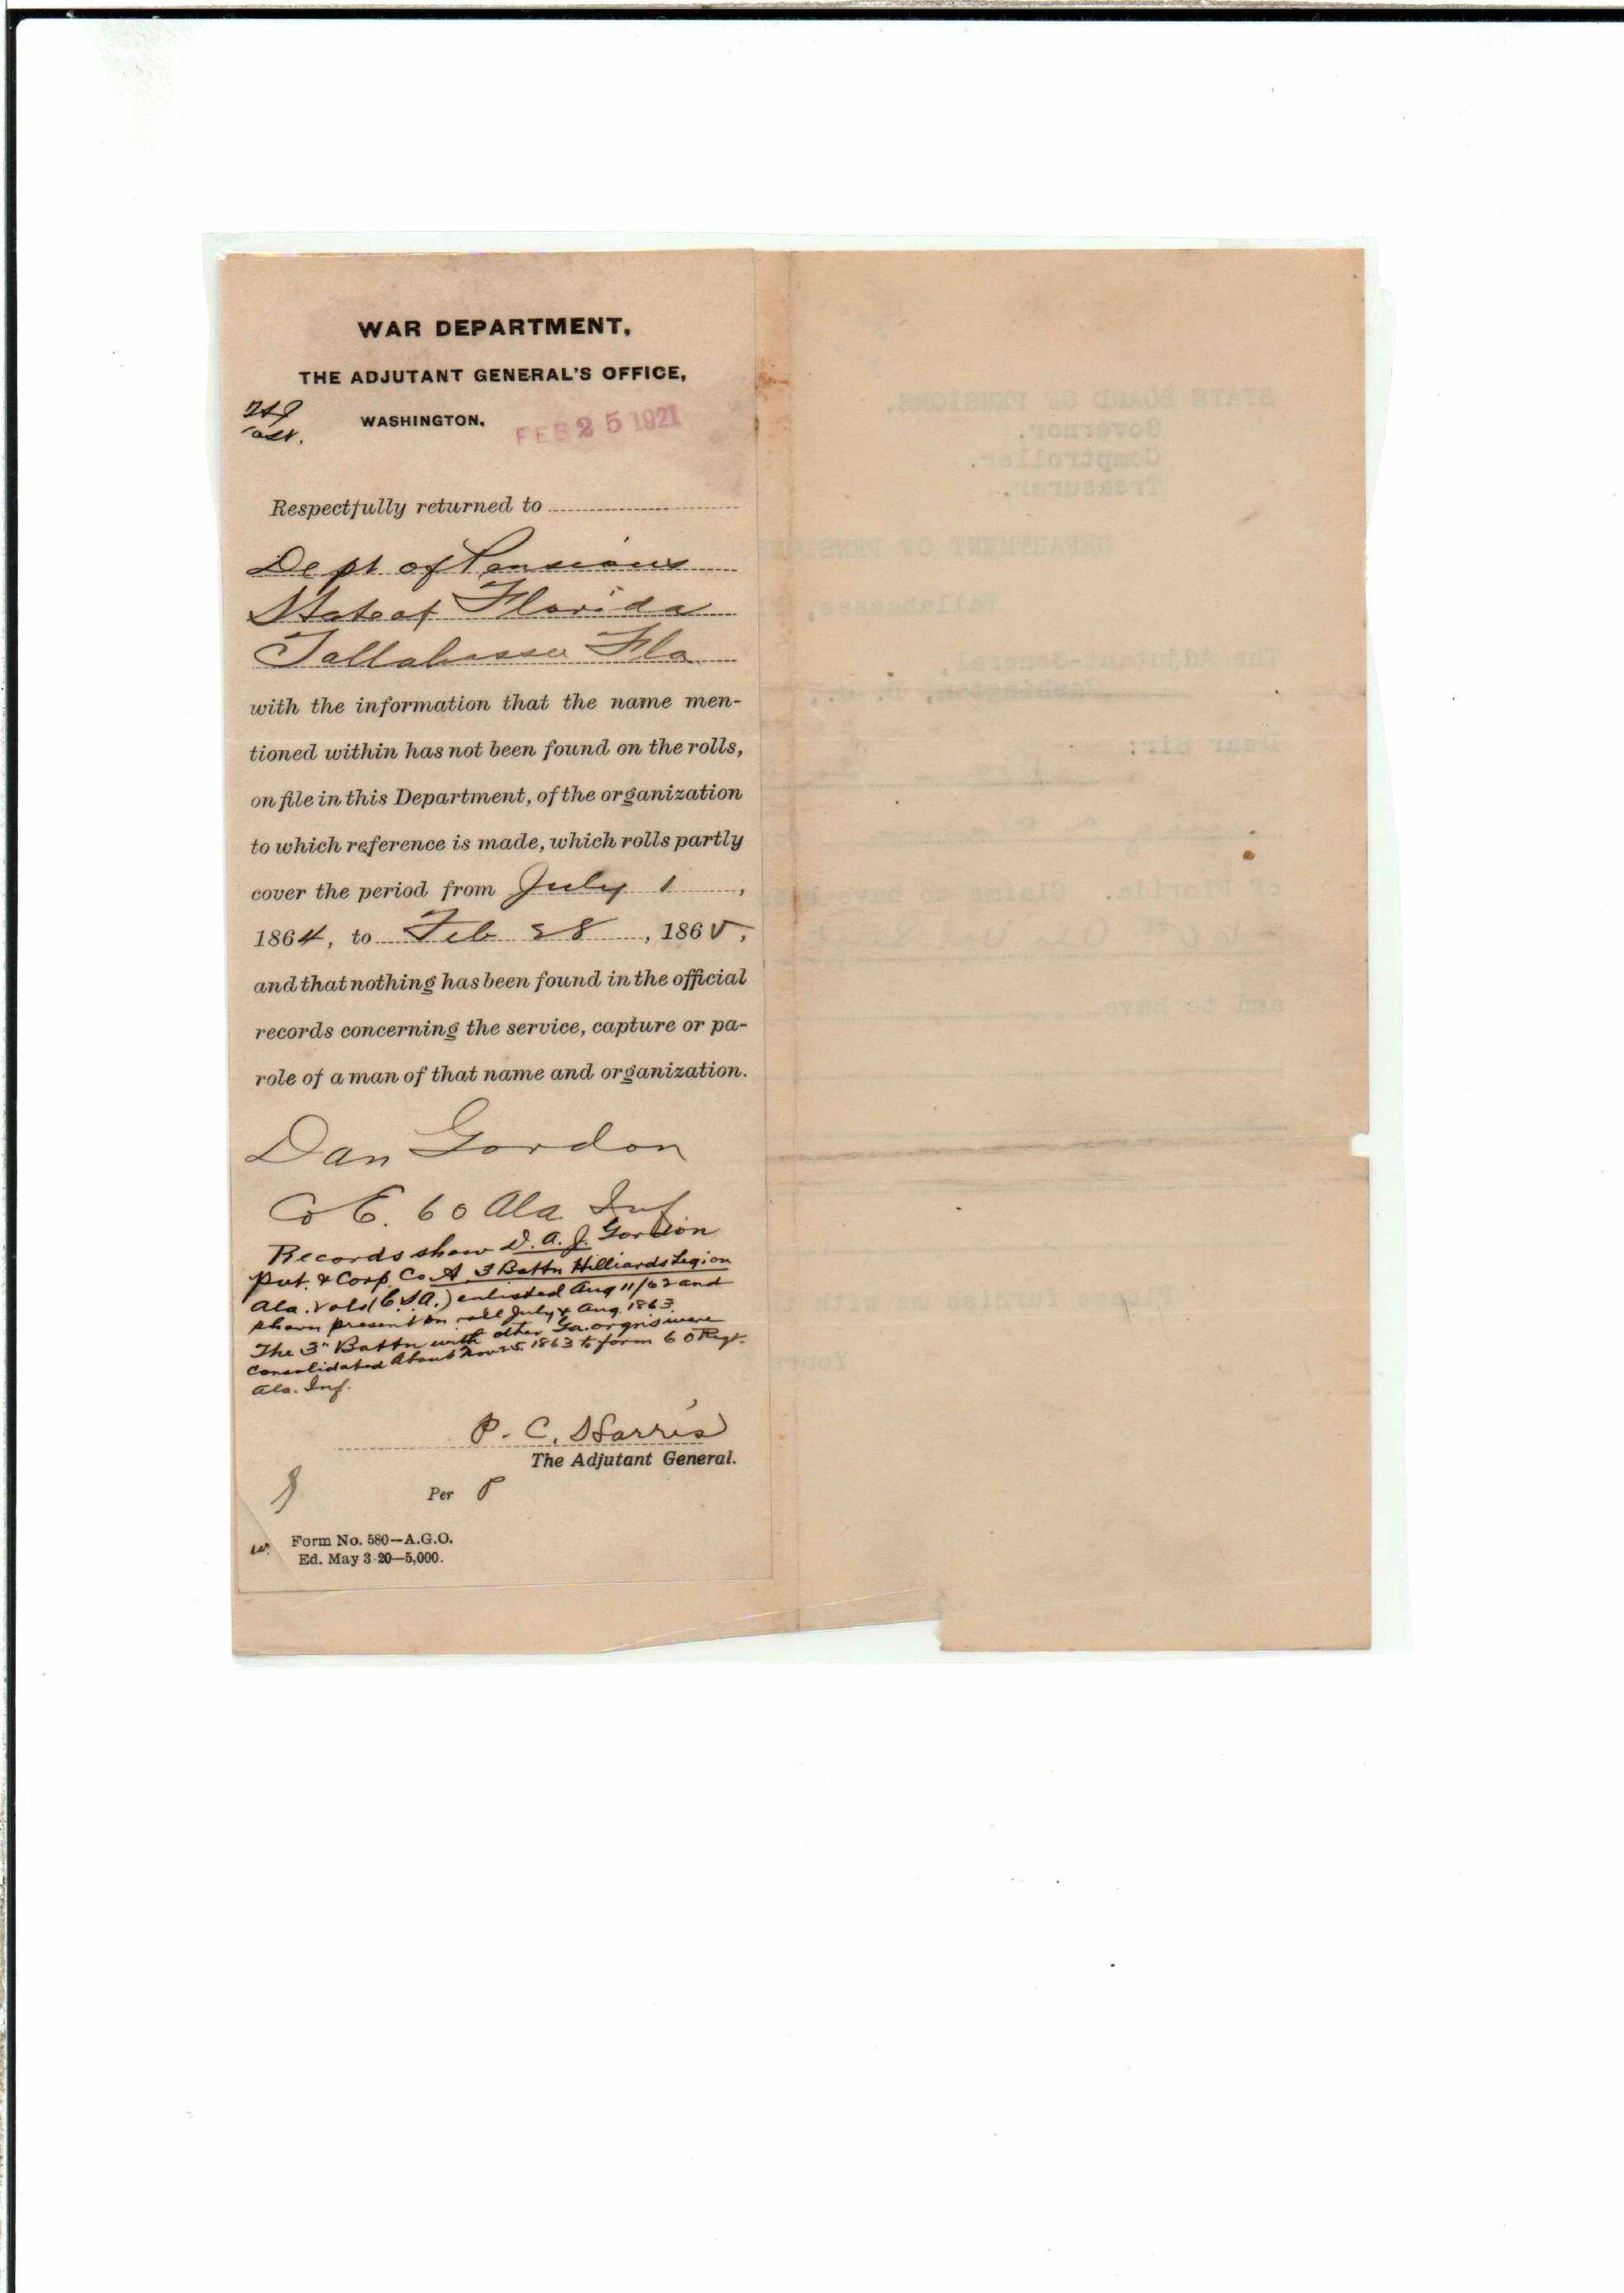 WAR DEPARTMENT,
THE ADJUTANT GENERAL'S OFFICE,
WASHINGTON,
FEB 25 1921
Respectfully returned to
Dept of Pensions
State of Florida
Tallahassee Fla
with the information that the name men-
tioned within has not been found on the rolls,
on file in this Department, of the organization
to which reference is made, which rolls partly
cover the period from July 1,
1864, to Feb 28, 1865,
and that nothing has been found in the official
records concerning the service, capture or pa-
role of a man of that name and organization.
Dan Gordon
Co E. 60 Ala Inf
Records show D. A. J. Gordon
Pvt. & Corp. Co A 3 Battn Hilliards Legion
Ala. Vols (C.S.A.) enlisted Aug 11/62 and
shown present on roll July & Aug. 1863.
The 3" Battn with other Ga. orgns were
Consolidated about Nov 25. 1863 to form 60 Regt.
Ala. Inf.
P. C. Harris
The Adjutant General.
Per
w.
Form No. 580—A.G.O.
Ed. May 3-20—5,000.
STATE BOARD OF PENSIONS.
Governor.
Comptroller.
Treasurer.
DEPARTMENT OF PENSIONS
Tallahassee,
The Adjutant-General,
Washington, D. C.
Dear Sir:
of Florida. Claims to have
and to have
Please furnish us with
Yours